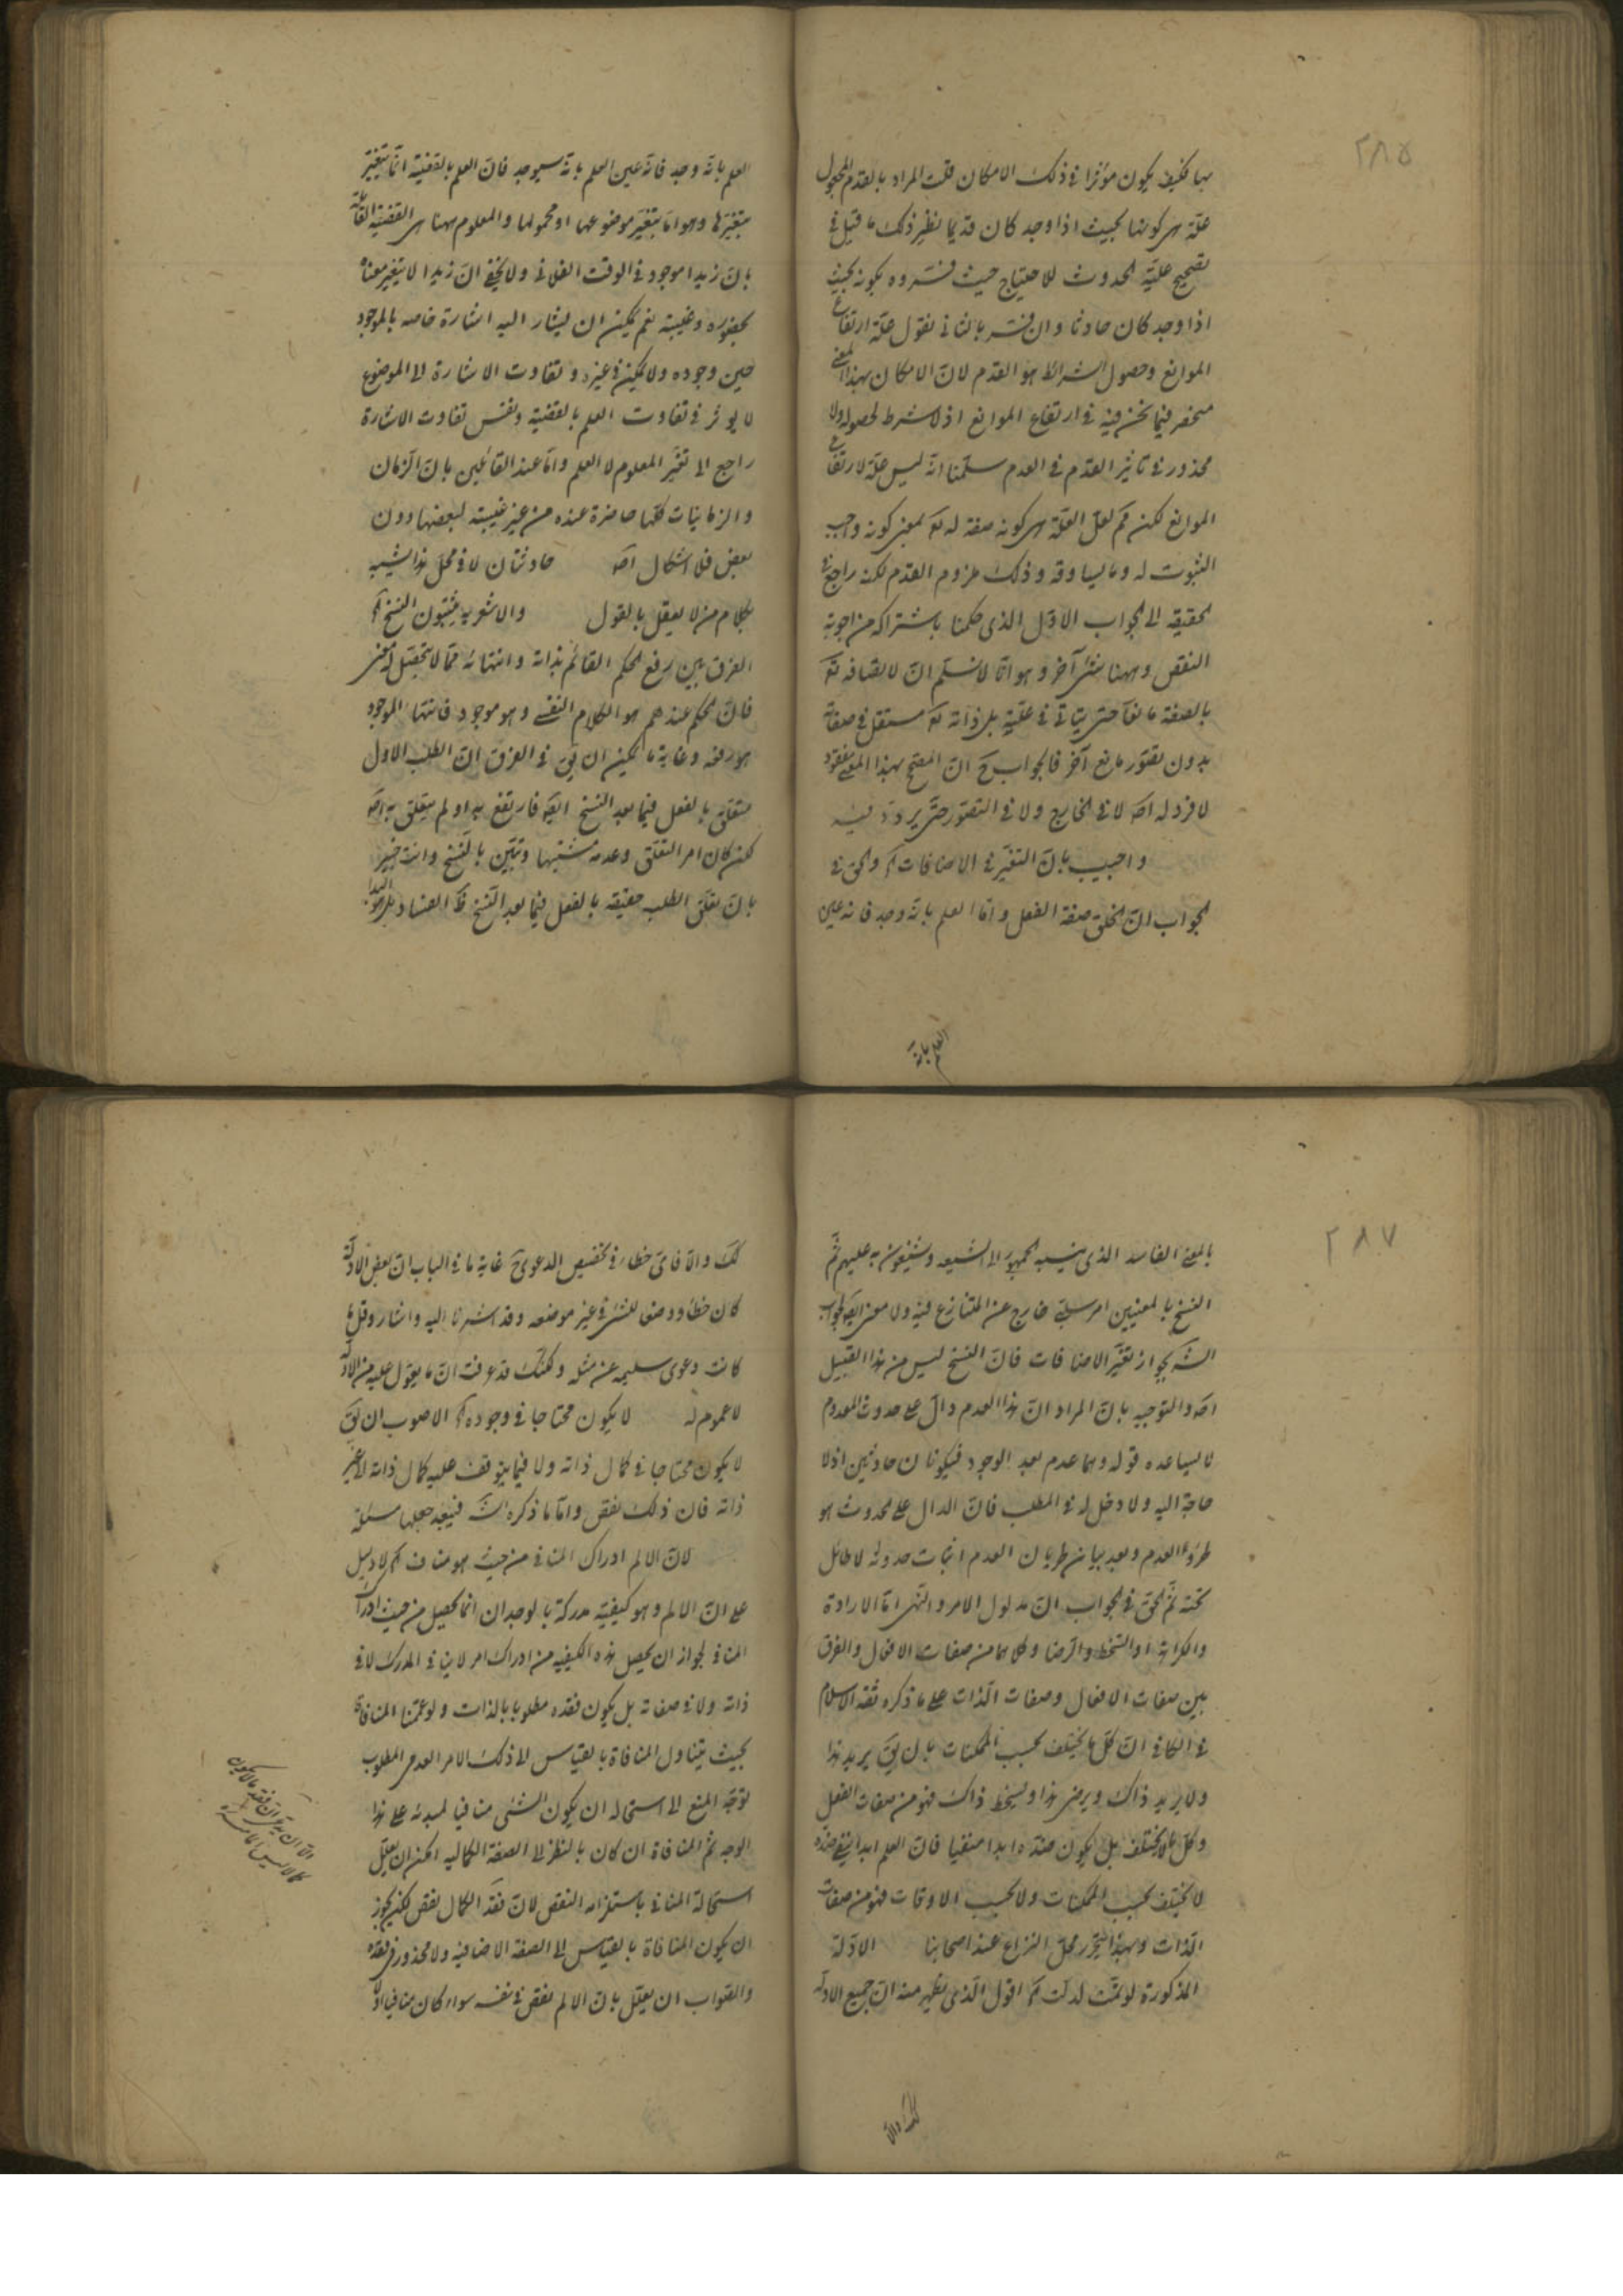 ٢٨٥
بها فكيف يكون مؤثرا في ذلك الامكان قلت المراد بالقدم المجعول
علة هي كونها بحيث اذا وجد كان قديما نظير ذلك ما قيل في
تصحيح علية الحدوث للاحتياج حيث فسروه بكونه بحيث
اذا وجد كان حادثا وان فسر بالثاني نقول علة ارتفاع
الموانع وحصول الشرائط هو القدم لان الامكان بهذا المعنى
منحصر فيما نحن فيه في ارتفاع الموانع اذ لا شرط لحصوله ولا
محذور في تاثير القدم في العدم سلمنا انه ليس علة لارتفاع
الموانع لكن لم لعل العلة هي كونه صفة له تع بمعنى كونه واجب
الثبوت له وما يساوقه وذلك ملزوم القدم لكنه راجع في
الحقيقة الى الجواب الاول الذي حكمنا باشتراكه من اجوبة
النقض وههنا شئ آخر وهو انا لا نسلم ان لاتصافه تع
بالصفة مانعا حتى يتاتى في علية بل ذاته تع مستقل في صفاته
بدون تصور مانع آخر فالجواب ح ان المصحح بهذا المعنى مفقود
لا فرد له اصلا في الخارج ولا في التصور حتى يردد فيه
واجيب بان التغير في الاضافات آه والحق في
الجواب ان الخلق صفة الفعل واما العلم بانه وجد فانه عين
العلم بانه
العلم بانه وجد فانه عين العلم بانه سيوجد فان العلم بالقضية انما يتغير
بتغيرها وهو اما بتغير موضوعها او محمولها والمعلوم ههنا هي القضية القائلة
بان زيدا موجود في الوقت الفلاني ولا يخفى ان زيدا لا يتغير معناه
بحضوره وغيبته نعم يمكن ان يشار اليه اشارة خاصه بالموجود
حين وجوده ولا يمكن في غيره وتفاوت الاشارة الى الموضوع
لا يوثر في تفاوت العلم بالقضية ونفس تفاوت الاشارة
راجع الى تغير المعلوم لا العلم واما عند القائلين بان الزمان
والزمانيات كلها حاضرة عنده من غير غيبته لبعضها دون
بعض فلا اشكال اصلا حادثتان لا في محل هذا شبيه
بكلام من لا يعقل ما يقول والاشعرية يثبتون النسخ آه
الفرق بين رفع الحكم القائم بذاته وانتهائه مما لا يتحصل له معنى
فان الحكم عندهم هو الكلام النفسي وهو موجود فانتهاء الموجود
هو رفعه وغاية ما يمكن ان يق في الفرق ان الطلب الاول
متعلق بالفعل فيما بعد النسخ ايضا فارتفع به او لم يتعلق به اصلا
لكن كان امر التعلق وعدمه مشتبها وتبين بالنسخ وانت خبير
بان تعلق الطلب حقيقة بالفعل فيما بعد النسخ ظ الفساد بل هو البداء
٢٨٧
بالمعنى الفاسد الذي ينسبه الجمهور الى الشيعه ويشنعون به عليهم ثم
النسخ بالمعنيين امر سلبي خارج عن المتنازع فيه ولا معنى ايضا لجواب
الش بجواز تغير الاضافات فان النسخ ليس من هذا القبيل
اصلا والتوجيه بان المراد ان هذا العدم دال على حدوث المعدوم
لا يساعده قوله وهما عدم بعد الوجود فيكونان حادثين اذ لا
حاجة اليه ولا دخل له في المطلب فان الدال على الحدوث هو
طروء العدم وبعد بيان طريان العدم اثبات حدوثه لا طائل
تحته ثم الحق في الجواب ان مدلول الامر والنهي اما الارادة
والكراهة او السخط والرضا وكلاهما من صفات الافعال والفرق
بين صفات الافعال وصفات الذات على ما ذكره ثقة الاسلام
في الكافي ان كل ما يختلف بحسب الممكنات بان يق يريد هذا
ولا يريد ذاك ويرضى هذا ويسخط ذاك فهو من صفات الفعل
وكل ما لا يختلف بل يكون ضده ابدا منفيا فان العلم ابدا ينفي ضده
لا يختلف بحسب الممكنات ولا بحسب الاوقات فهو من صفات
الذات وبهذا يتحرر محل النزاع عند اصحابنا الادلة
المذكورة لو تمت لدلت آه اقول الذي يظهر منه ان جميع الادلة
كك والا
كك والا فاى خطاء في تخصيص الدعوى غاية ما في الباب ان بعض الادلة
كان خطأ ووضعا للشئ في غير موضعه وقد اشرنا اليه واشار وقل ما
كانت دعوى سليمه عن مثله ولكنك قد عرفت ان ما يعول عليه من الادلة
لا عموم له لا يكون محتاجا في وجوده آه الاصوب ان يق
لا يكون محتاجا في كمال ذاته ولا فيما يتوقف عليه كمال ذاته الى غير
ذاته فان ذلك نقص واما ما ذكره الش فيتجه جعلها مسئلة
لان الالم ادراك المنافي من حيث هو مناف آه لا دليل
على ان الالم وهو كيفية مدركة بالوجدان انما يحصل من حيث ادراك
المنافي لجواز ان يحصل هذه الكيفية من ادراك امر لا ينافي المدرك لا في
ذاته ولا في صفاته بل يكون فقده مطلوبا بالذات ولو عممنا المنافاة
بحيث يتناول المنافاة بالقياس الى ذلك الامر العدمي المطلوب
توجه المنع الى استحالة ان يكون الشئ منافيا لمبدئه على هذا
الوجه ثم المنافاة ان كان بالنظر الى الصفة الكماليه امكن ان يعلل
استحالة المنافي باستلزامه النقص لان فقد الكمال نقص لكن يجوز
ان يكون المنافاة بالقياس الى الصفة الاضافيه ولا محذور في فقده
والصواب ان يعلل بان الالم نقص في نفسه سواء كان منافيا او لا
الا ان يدعى ان فقد ما لا يكون
كمالا ليس